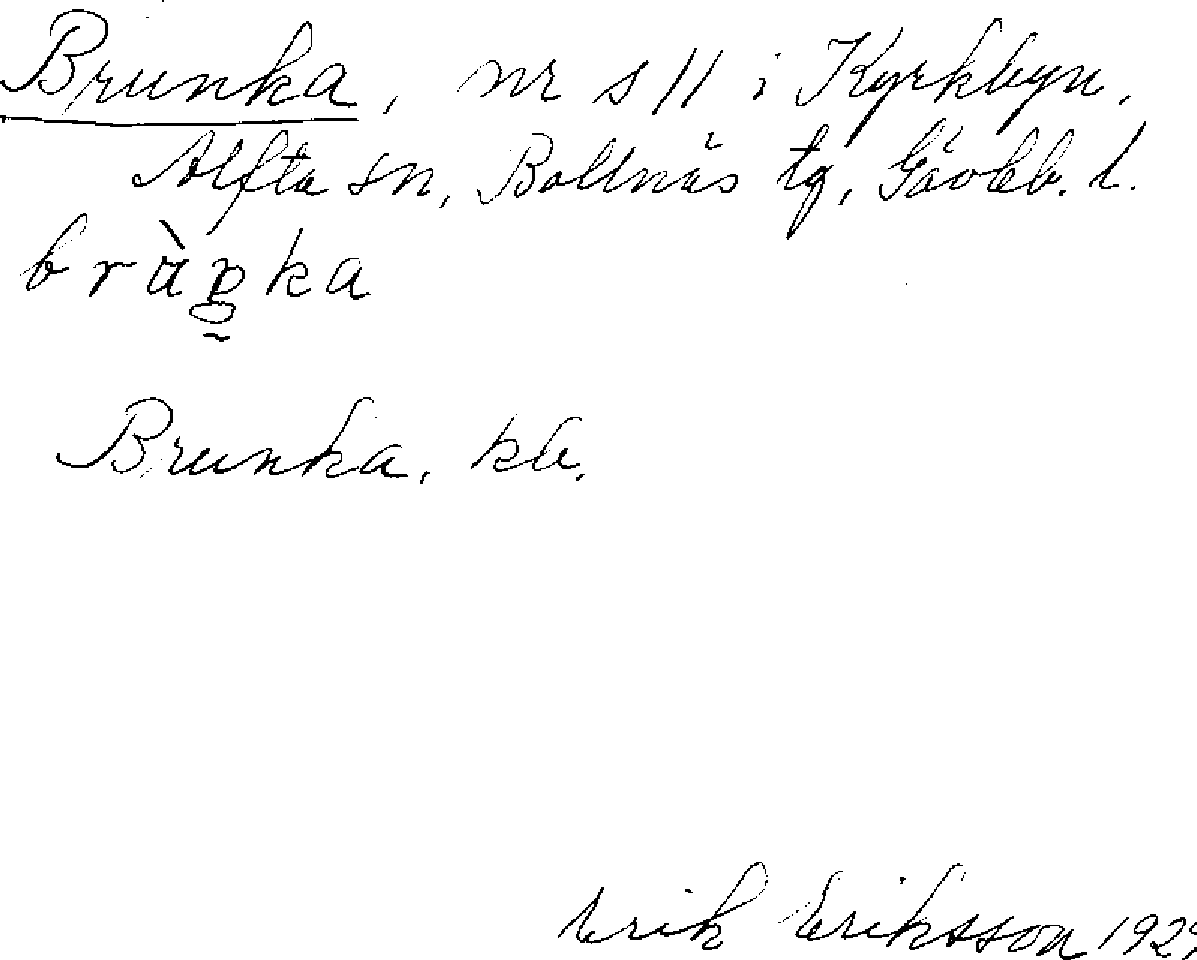 Brunka, nr s 11 i Kyrkbyn,
Alfta sn, Bollnäs tg, Gävleb. l.
Brunka, kb.
Erik Eriksson